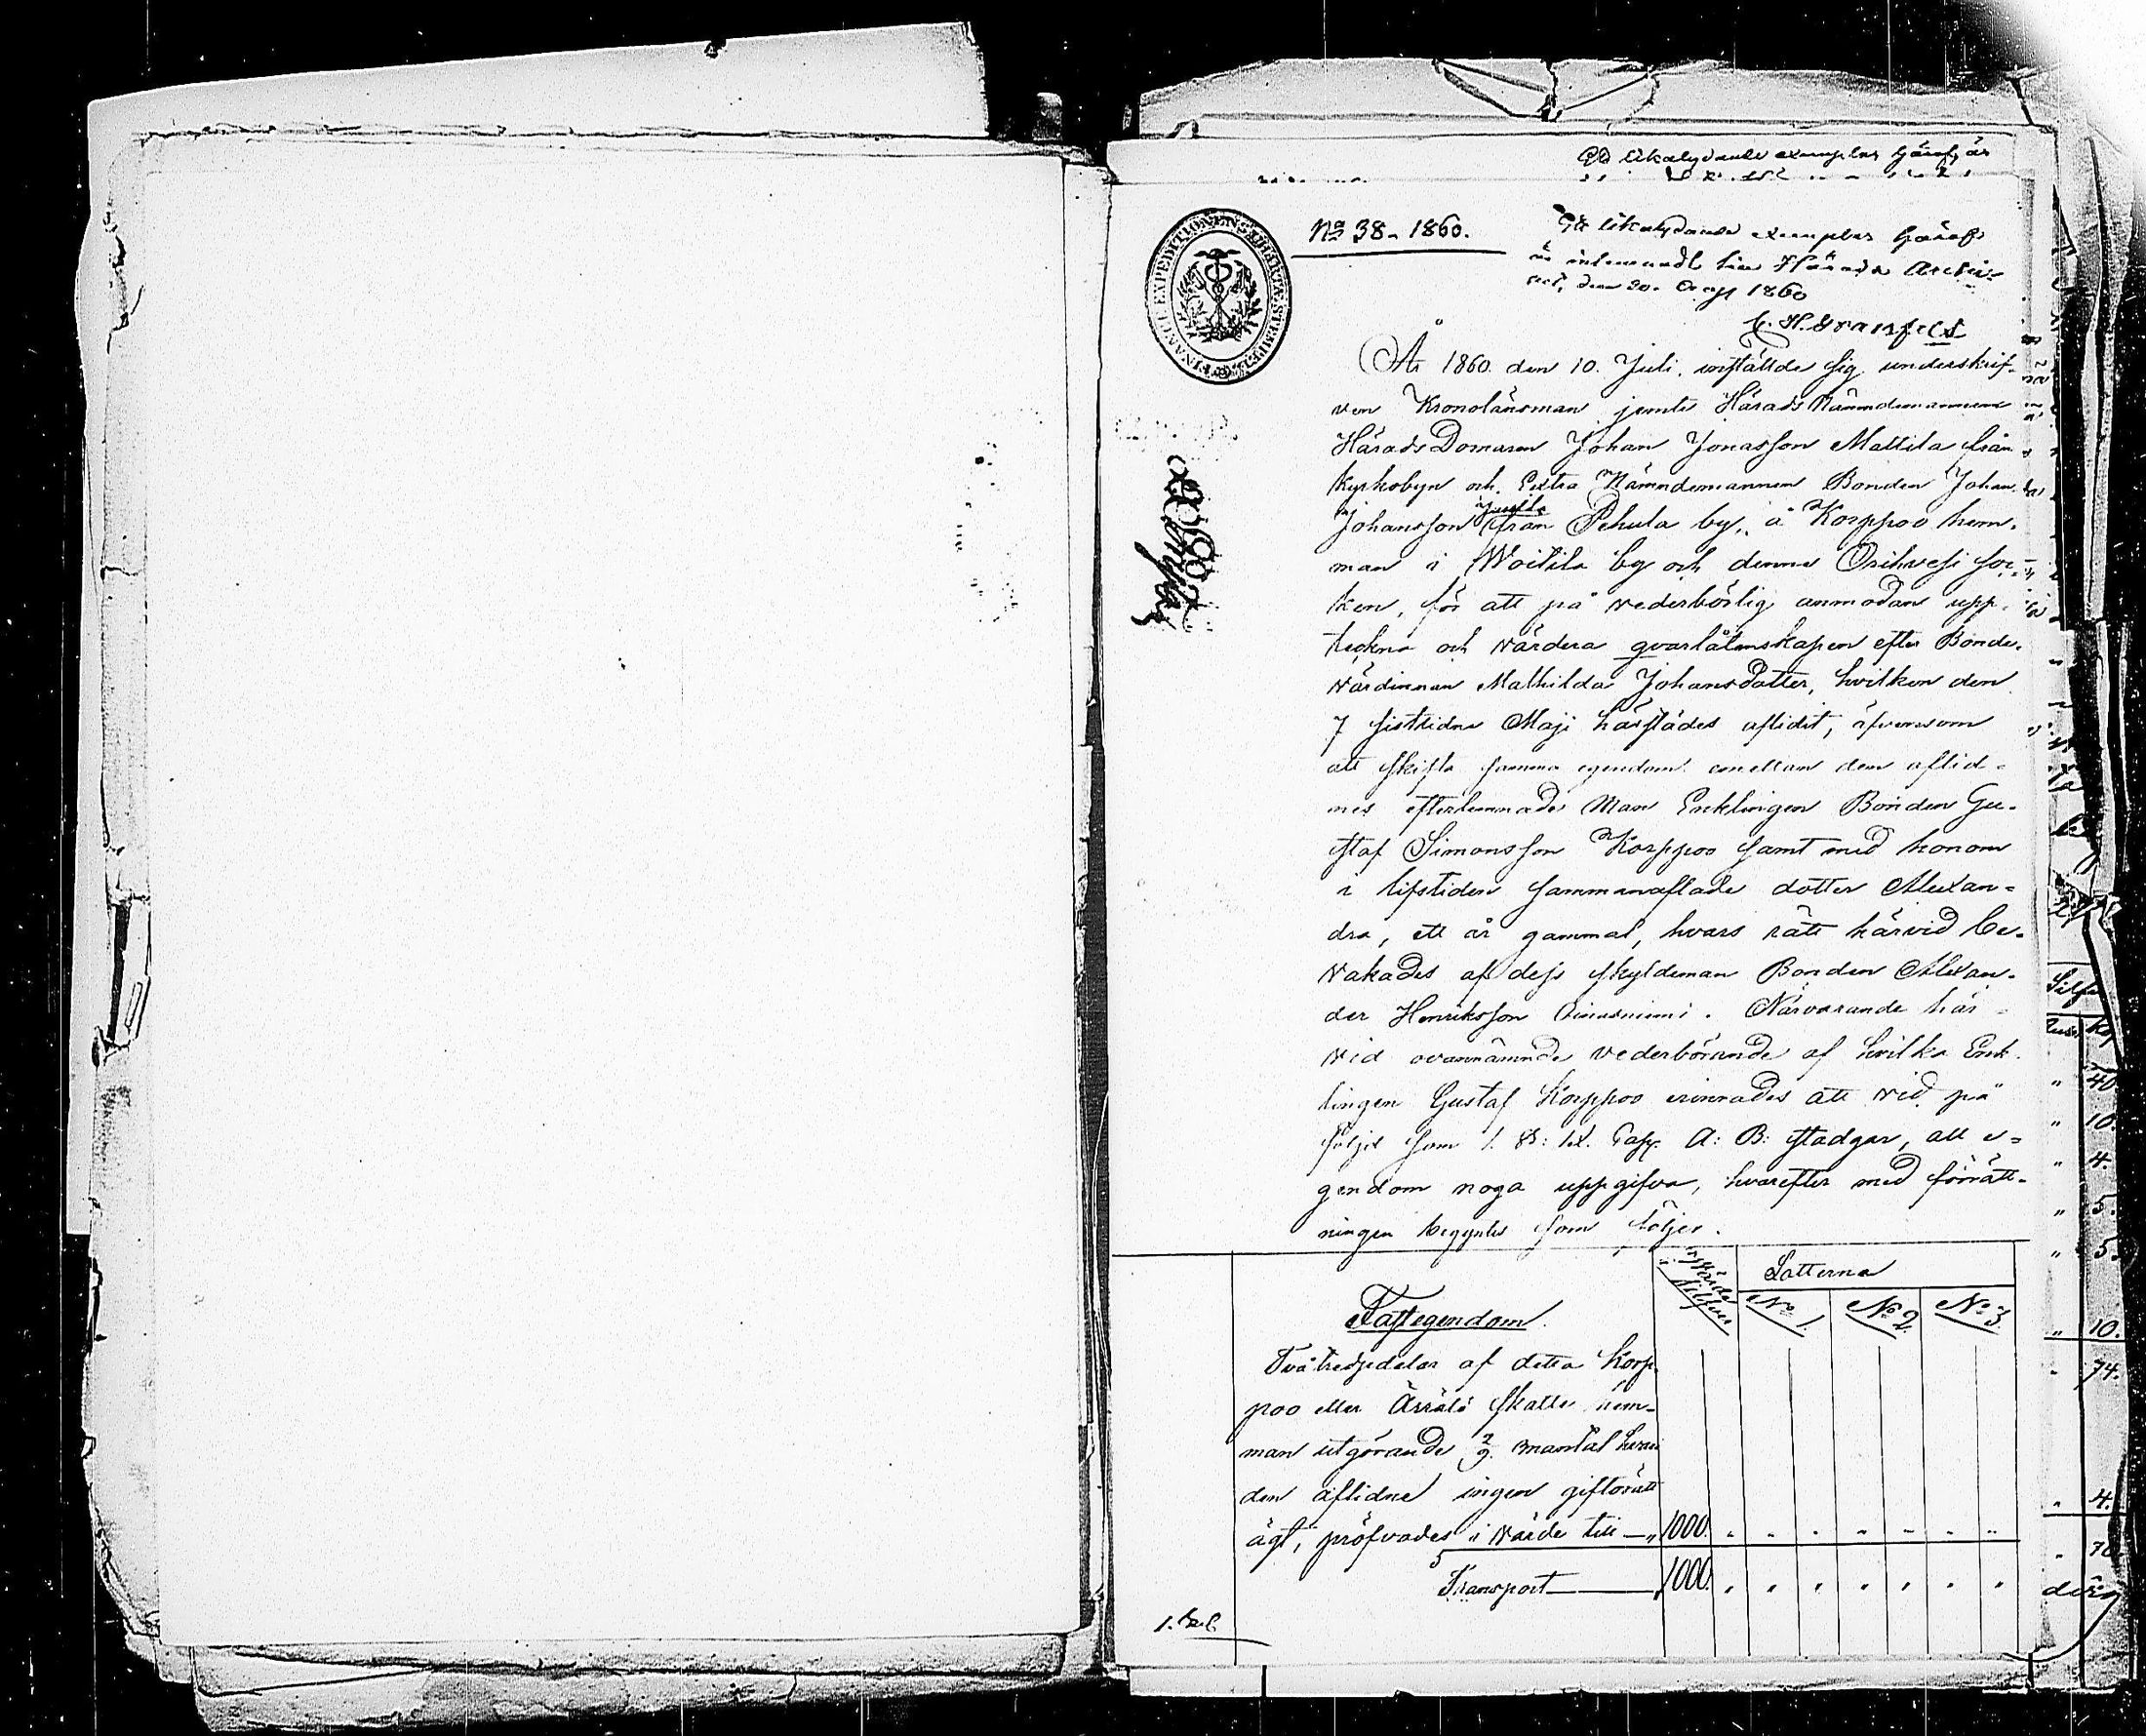 Ett likalydande exemplar häraf, är
FINANCE EXPEDITIONENS CHARTÆ STEMPEL
No 38. 1860.
Ett likalydande exemplar häraf
är inlemnadt till Härads Archi-
vet, den 20. Aug 1860
C. H. Granfelt
År 1860. den 10. Juli, inställde sig underskrif-
ven Kronolänsman jemte Härads Nämndemännen
Härads Domaren Johan Jonasson Mattila från
Kyrkobyn och Extra Nämndemannen Bonden Johan
Johansson Junttila från Pehula by, å Korppoo hem-
man i Woitila by och denna Orihvesi soc-
ken, för att på vederbörlig anmodan upp-
teckna och värdera qvarlåtenskapen efter Bonde-
värdinnan Mathilda Johansdotter, hvilken den
7 sistlidne Maji härstädes aflidit, äfvensom
att skifta samma egendom emellan den aflid-
nes efterlemnade Man Enklingen Bonden Gu-
staf Simonsson Korppoo samt med honom
i lifstiden sammanaflade dotter Alexan-
dra, ett år gammal, hvars rätt härvid be-
vakades af dess skyldeman Bonden Alexan-
der Henriksson Oinasniemi. Närvarande här-
vid ovannämnde vederbörande af hvilka Enk-
lingen Gustaf Korppoo erinrades att vid på
följd som 1. §: IX. Cap. Ä: B: stadgar, all e-
gendom noga uppgifva, hvarefter med förrätt-
ningen begyntes som följer.
Värde i Silfver
Lotterna
No 1.
No 2.
No 3.
Fast egendom.
Två tredjedelar af detta Korp-
poo eller Ärrälä skatte hem-
man utgörande 2/9 mantal hvari
den aflidne ingen giftorätt
ägt, pröfvades i värde till — „ 1000.
Transport — 1000.
Silfver
Rub. Kop
„ 40
„ 10.
„ 4.
„ 5.
„ 5.
„ 10.
„ 74.
„ 4.